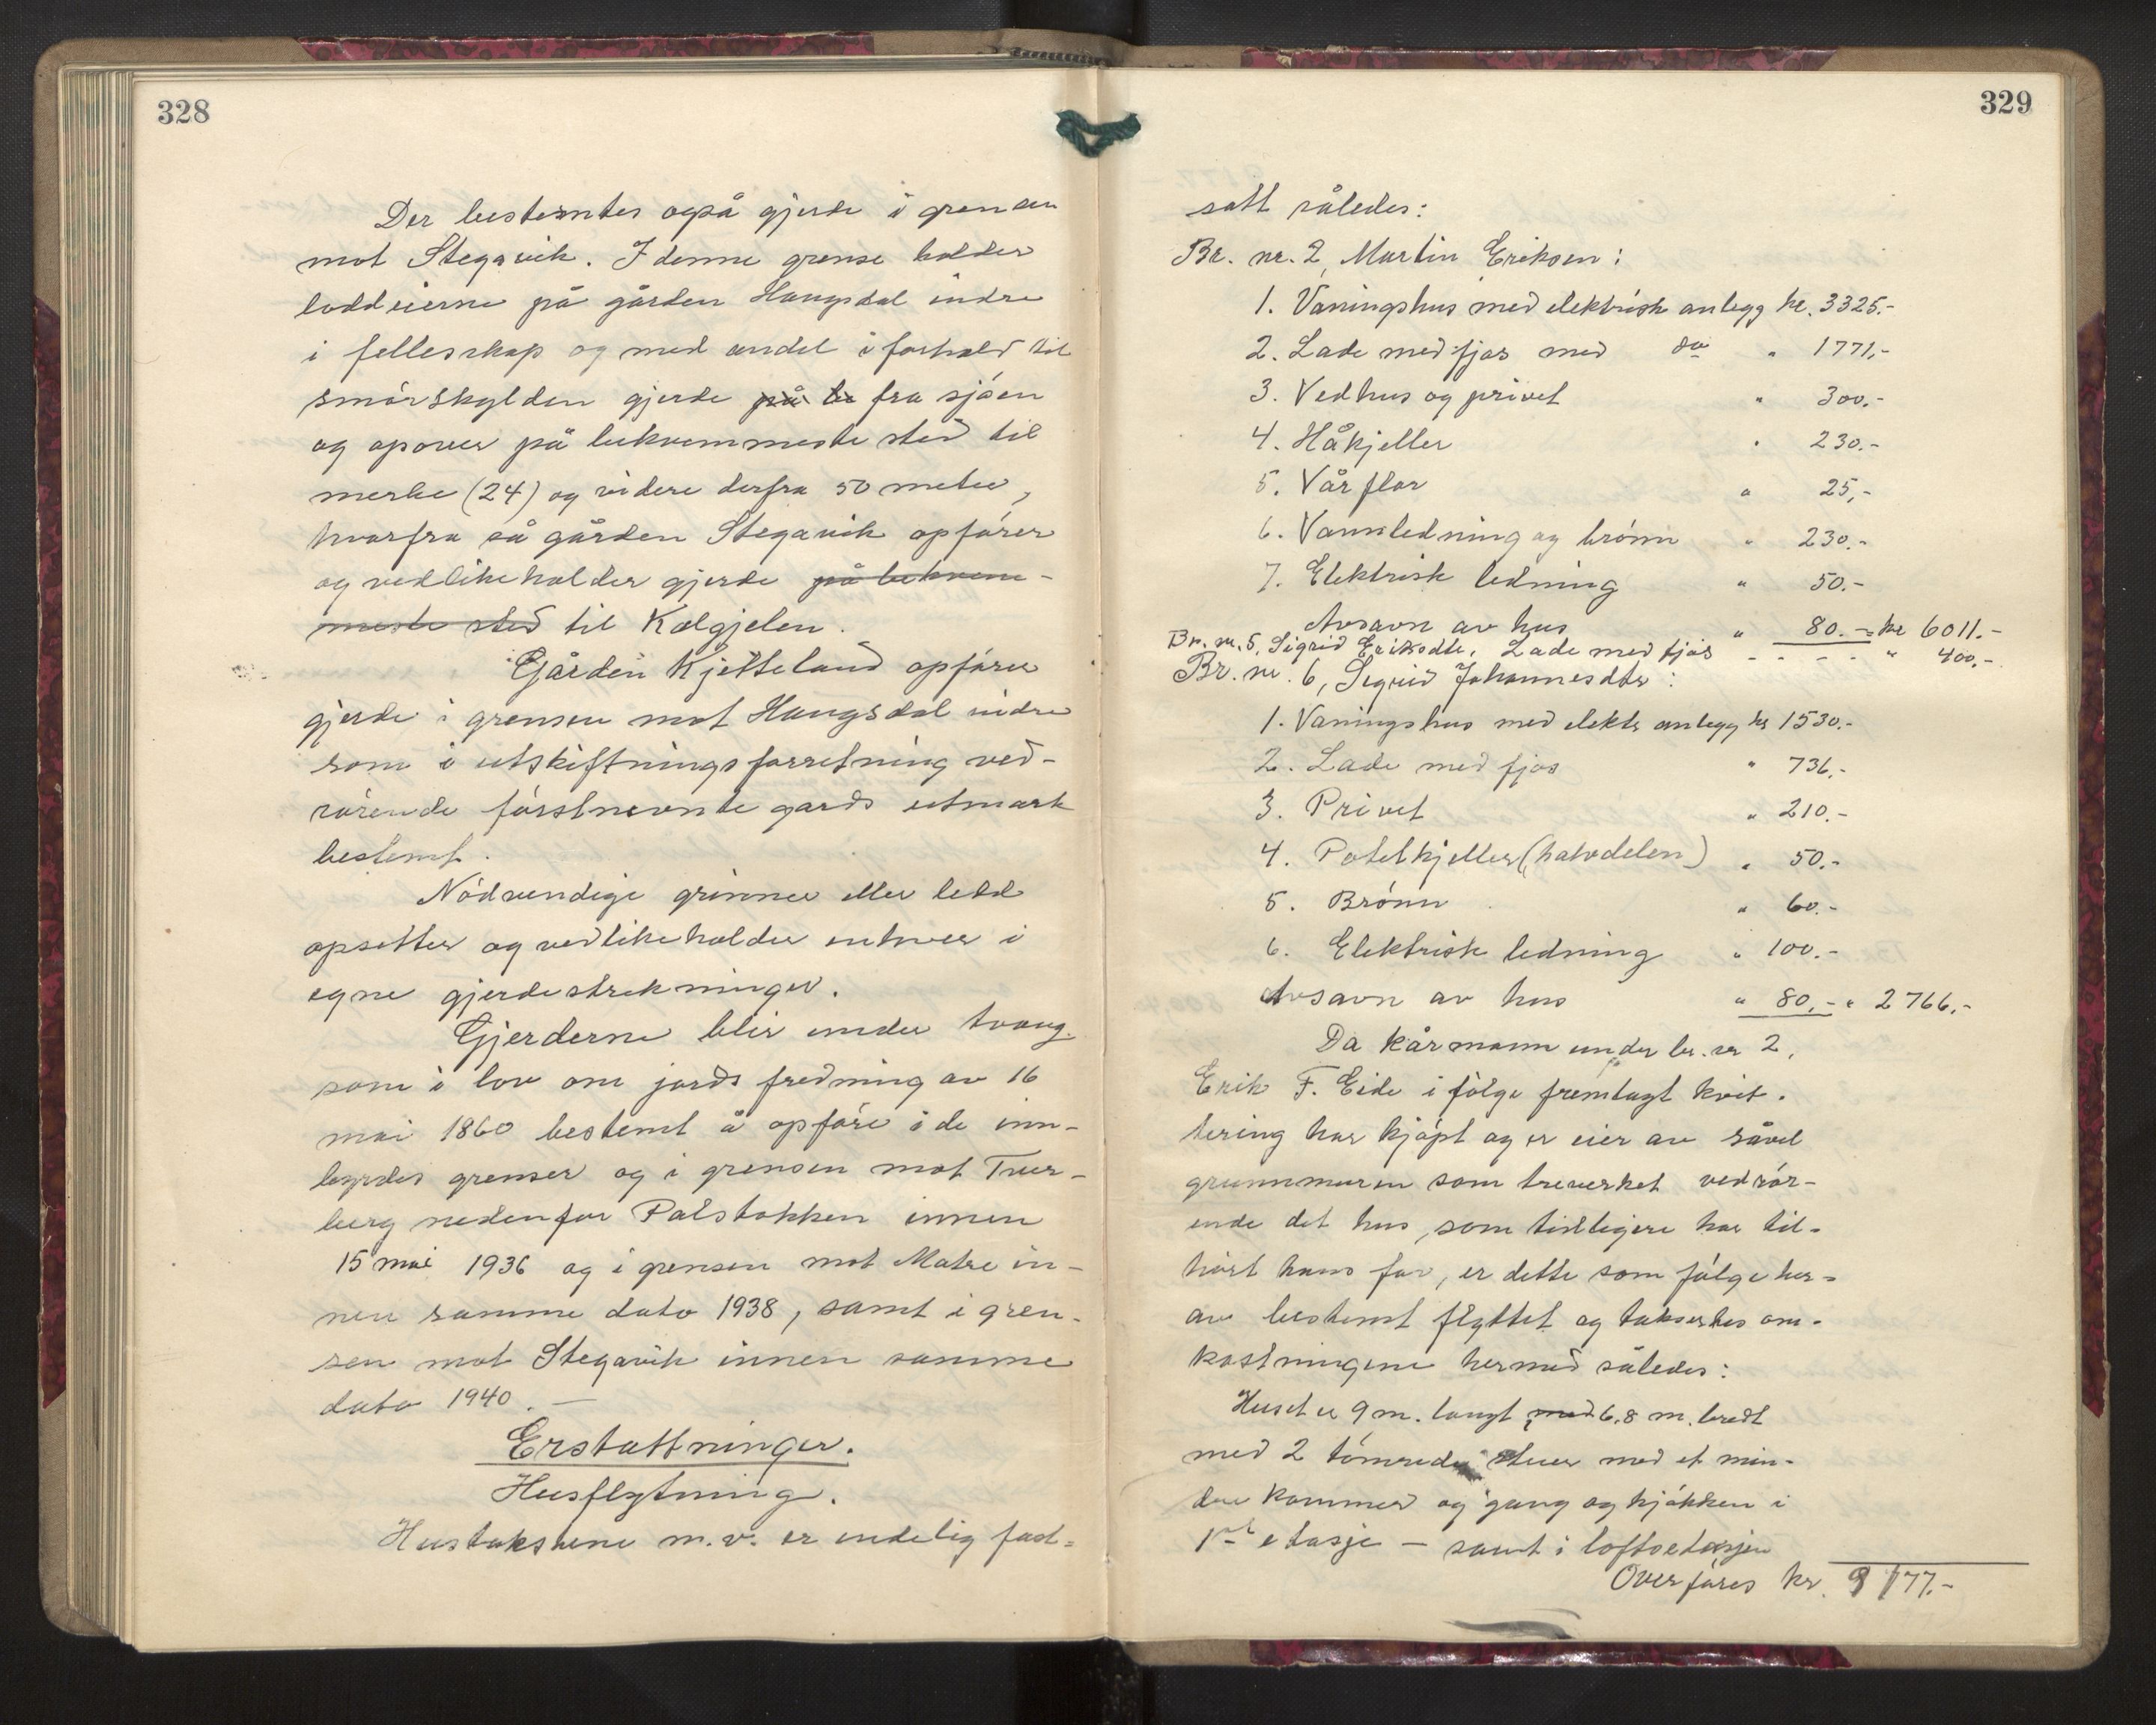 328
Der bestemtes også gjerde i grensen
mot Stegavik. I denne grense holder
loddeierne på gården Haugsdal indre
i fellesskap og med andel i forhold til
smørskylden gjerde på be fra sjøen
og opover på bekvemmeste sted til
merke (24) og videre derfra 50 meter,
hvorfra så gården Stegavik opfører
og vedlikeholder gjerde på bekvem-
meste sted til Kalgjelen.
Gården Kjetteland opfører
gjerde i grensen mot Haugsdal indre
som i utskiftningsforretning ved-
rørende førstnevnte gards utmark
bestemt.
Nødvendige grinner eller ledd
opsetter og vedlikeholder enhver i
egne gjerdestrekninger.
Gjerderne blir under tvang
som i lov om jords fredning av 16
mai 1860 bestemt å opføre i de inn-
byrdes grenser og i grensen mot Tver-
berg nedenfor Palstokken innen
15 mai 1936 og i grensen mot Matre in-
nen samme dato 1938, samt i gren-
sen mot Stegavik innen samme
dato 1940. —
Erstattninger.
Husflytning.
Hustakstene m.v. er endelig fast-
329
satt således:
Br. nr. 2, Martin Eriksen:
1. Vaningshus med elektrisk anlegg kr. 3325.-
2. Lade med fjos med do " 1771,-
3. Vedhus og privet " 300.-
4. Håkjeller " 230.-
5. Vårflor " 25,-
6. Vannledning og brønn " 230.-
7. Elektrisk ledning " 50.-
Avsavn av hus " 80.- = kr 6011.-
Br. nr. 5, Sigrid Eriksdtr. Lade med fjos - - - - " 400,-
Br. nr. 6, Sigrid Johannesdtr:
1. Vaningshus med elektr anlegg kr 1530.-
2. Lade med fjos " 736.-
3. Privet " 210.-
4. Potetkjeller (halvdelen) " 50.-
5. Brønn " 60.-
6. Elektrisk ledning " 100.-
Avsavn av hus " 80.- " 2766,-
Da kårmann under br. nr 2,
Erik F. Eide i følge fremlagt kvit-
tering har kjøpt og er eier av såvel
grunnmuren som treverket vedrør-
ende det hus, som tidligere har til-
hørt hans far, er dette som følge her-
av bestemt flyttet og takseres om-
kostningene hermed således:
Huset er 9 m. langt, med 6,8 m. bredt
med 2 tømrede stuer med et min-
dre kammer og gang og kjøkken i
1ste etasje — samt i loftsetasjen
Overføres kr. 9177.-